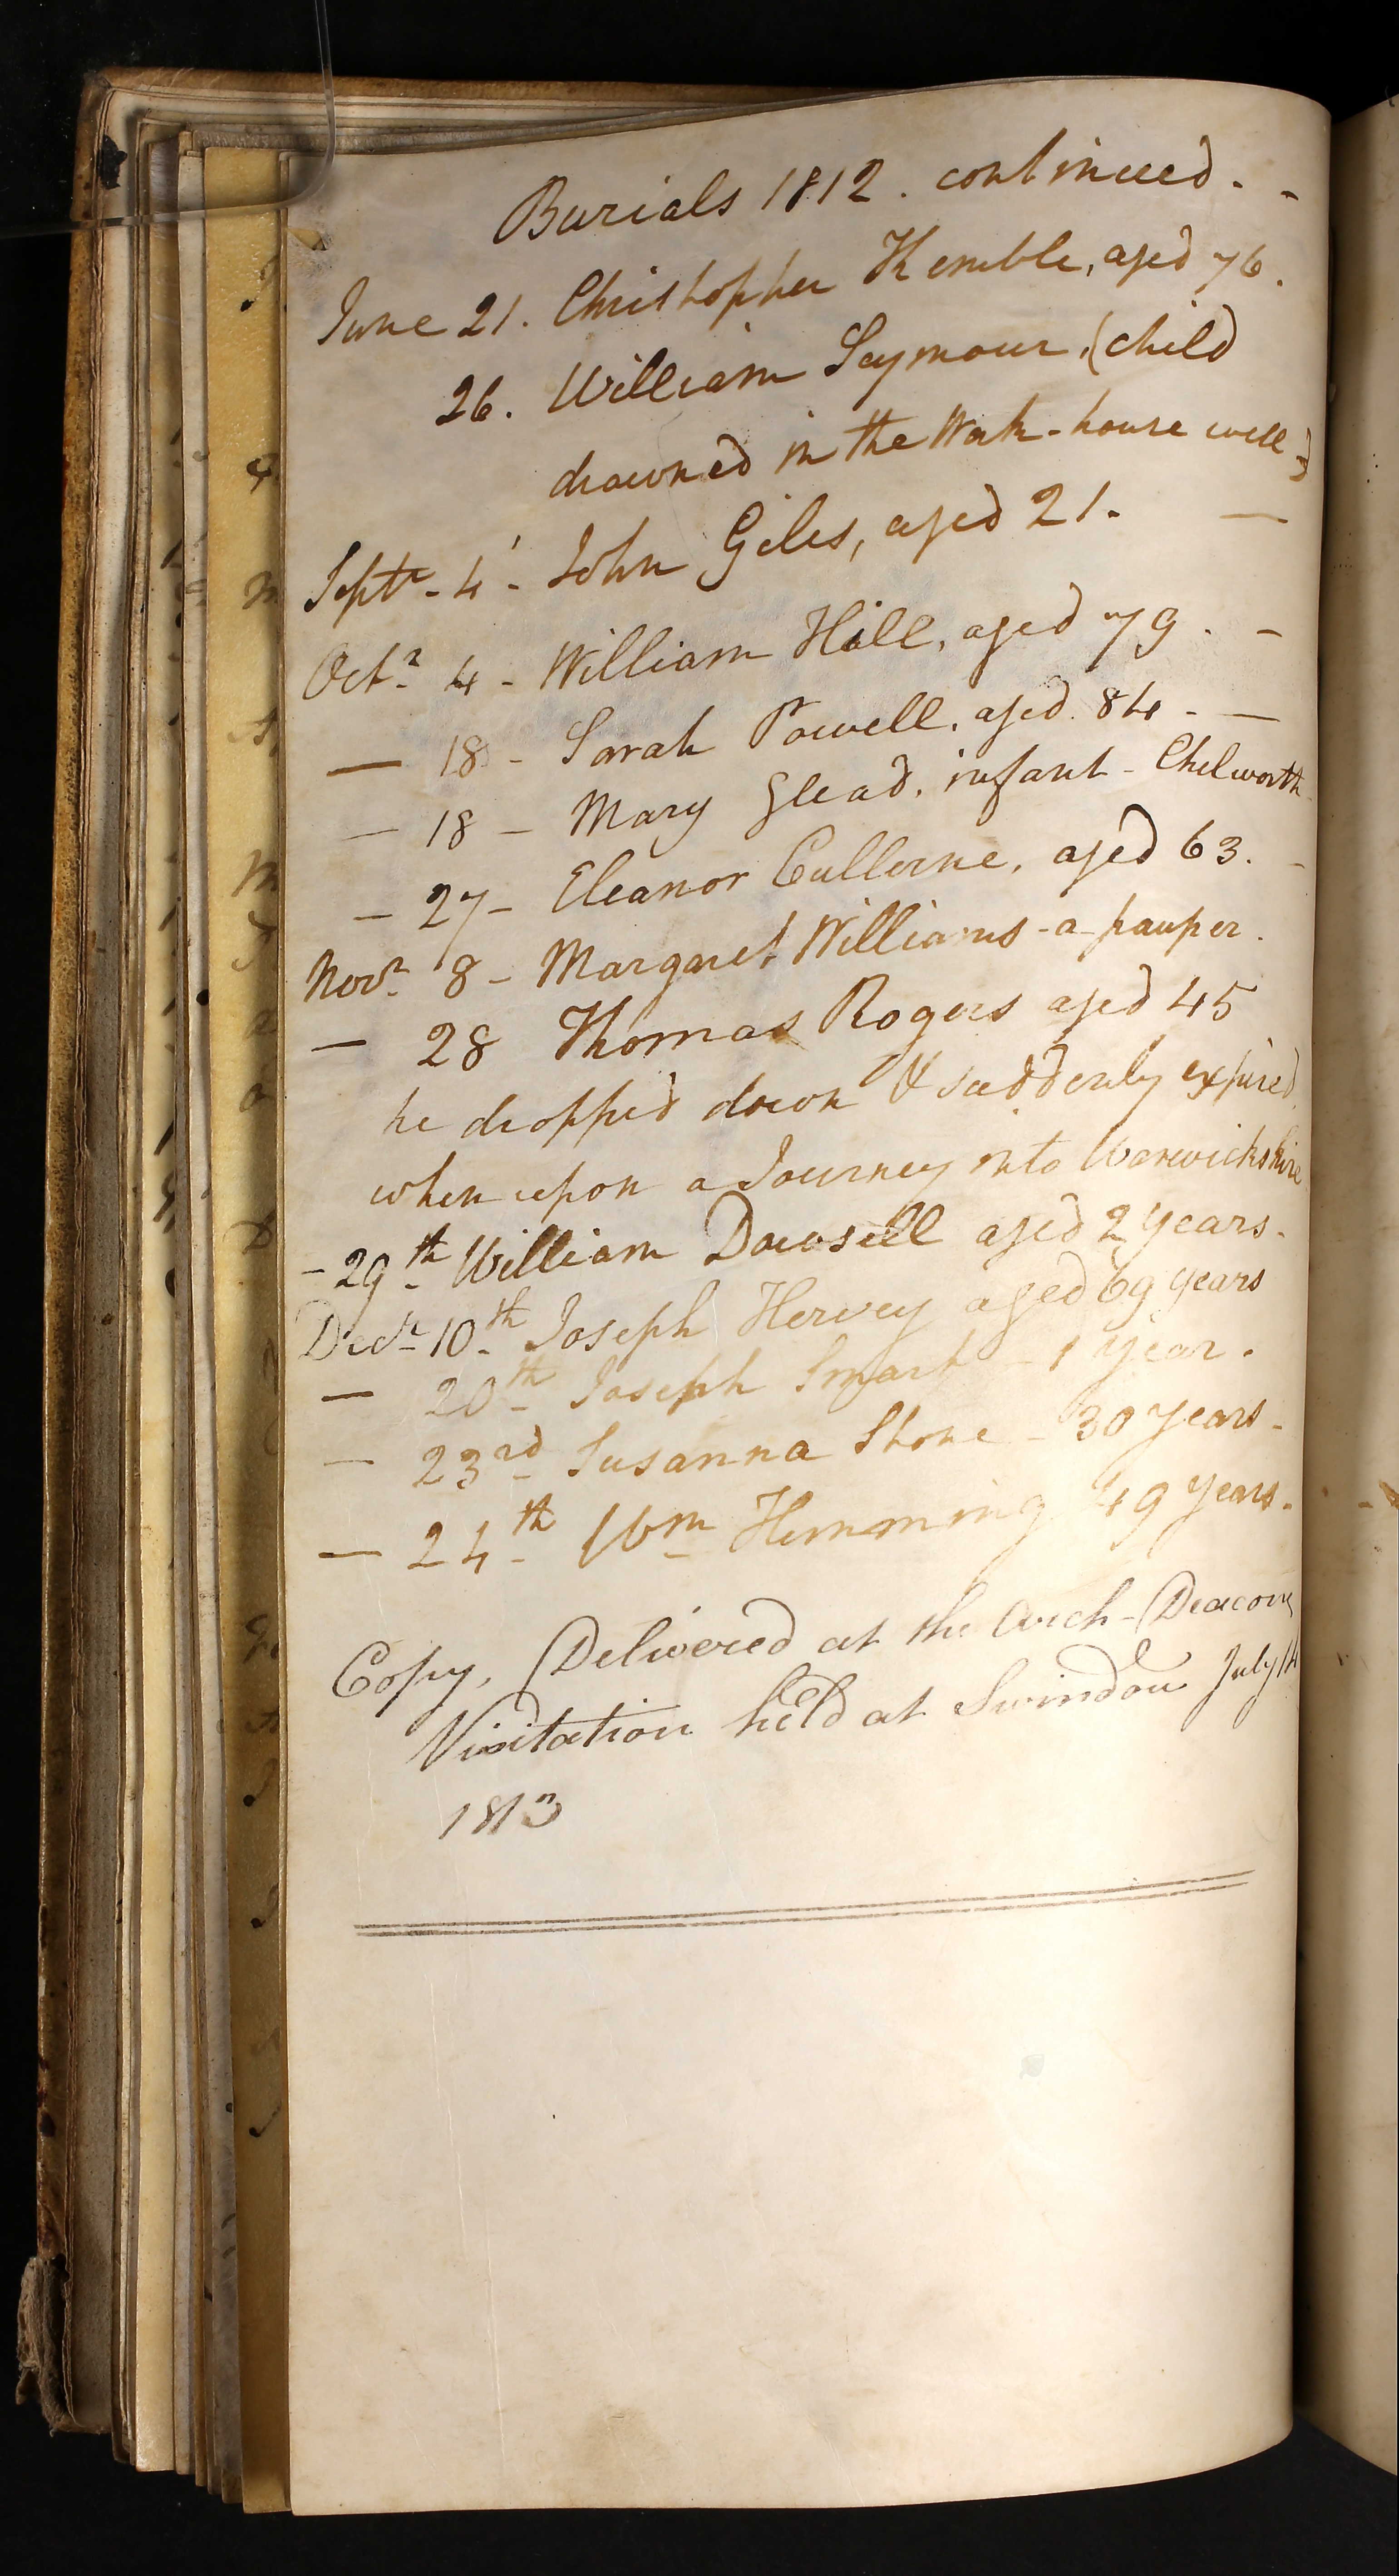 Burials 1812. continued. -
June 21. Christopher Kemble, aged 76.
26. William Seymour, (child
drowned in the Work-house well)
Septr. 4 - John Giles, aged 21. —
Octr. 4 - William Hill, aged 79. -
— 18 - Sarah Powell, aged 84 - —
— 18 - Mary Glead, infant - Chelworth
— 27 - Eleanor Cullerne, aged 63. -
Novr. 8 - Margaret Williams - a pauper.
— 28 Thomas Rogers aged 45
he dropped down & suddenly expired
when upon a Journey into Warwickshire
- 29th William Dowsell aged 2 years.
Decr. 10th Joseph Hervey aged 69 years
— 20th Joseph Smart - 1 year.
— 23rd Susanna Stone - 30 years -
— 24th Wm Hemming 49 years.
Copy, Delivered at the Arch-Deacons
Visitation held at Swindon July 14
1813